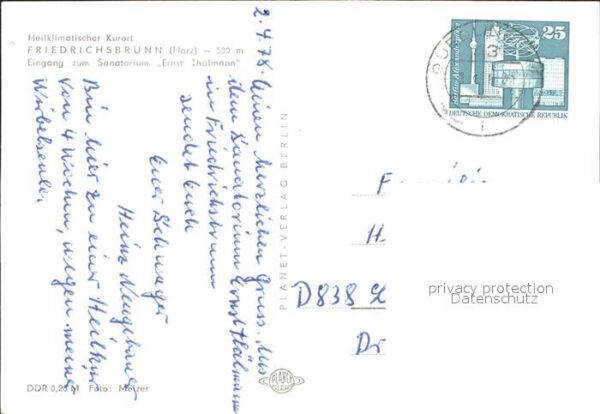 Heilklimatischer Kurort
FRIEDRICHSBRUNN (Harz) — 580 m
Eingang zum Sanatorium „Ernst Thälmann"
2.4.78.
Einen herzlichen Gruss. Aus
dem Sanatorium Ernst Thälmann
in Friedrichsbrunn
sendet Euch
Euer Schwager
Heinz Neugebauer
Bin hier zu einer Heilkur
von 4 Wochen, wegen meine
Wirbelseule.
PLANET-VERLAG BERLIN
PLANET
DDR 0,20 M Foto: Metzer
25
DEUTSCHE DEMOKRATISCHE REPUBLIK
F
H
D838
Dr
privacy protection
Datenschutz